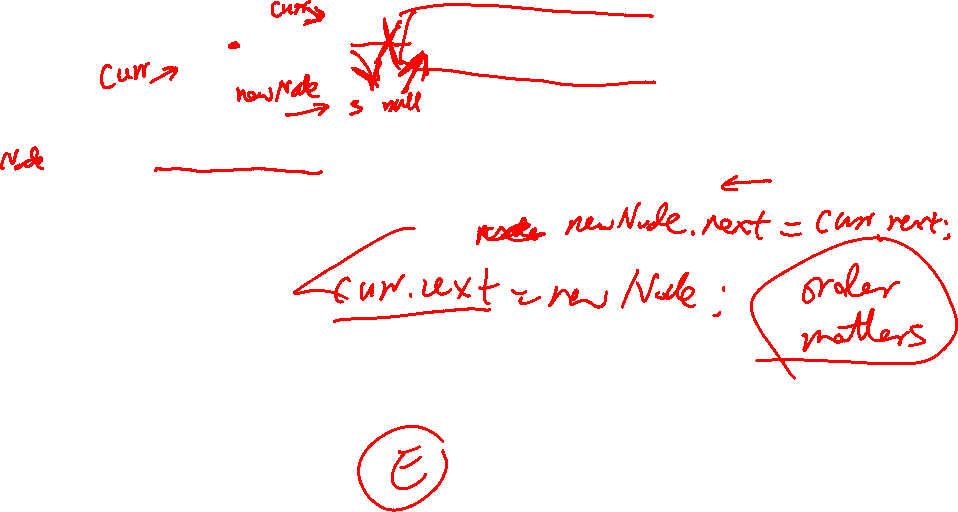 curr
Curr
newNode s null
Node
newNode.next = curr.next;
curr.next = newNode;
order
matters
E